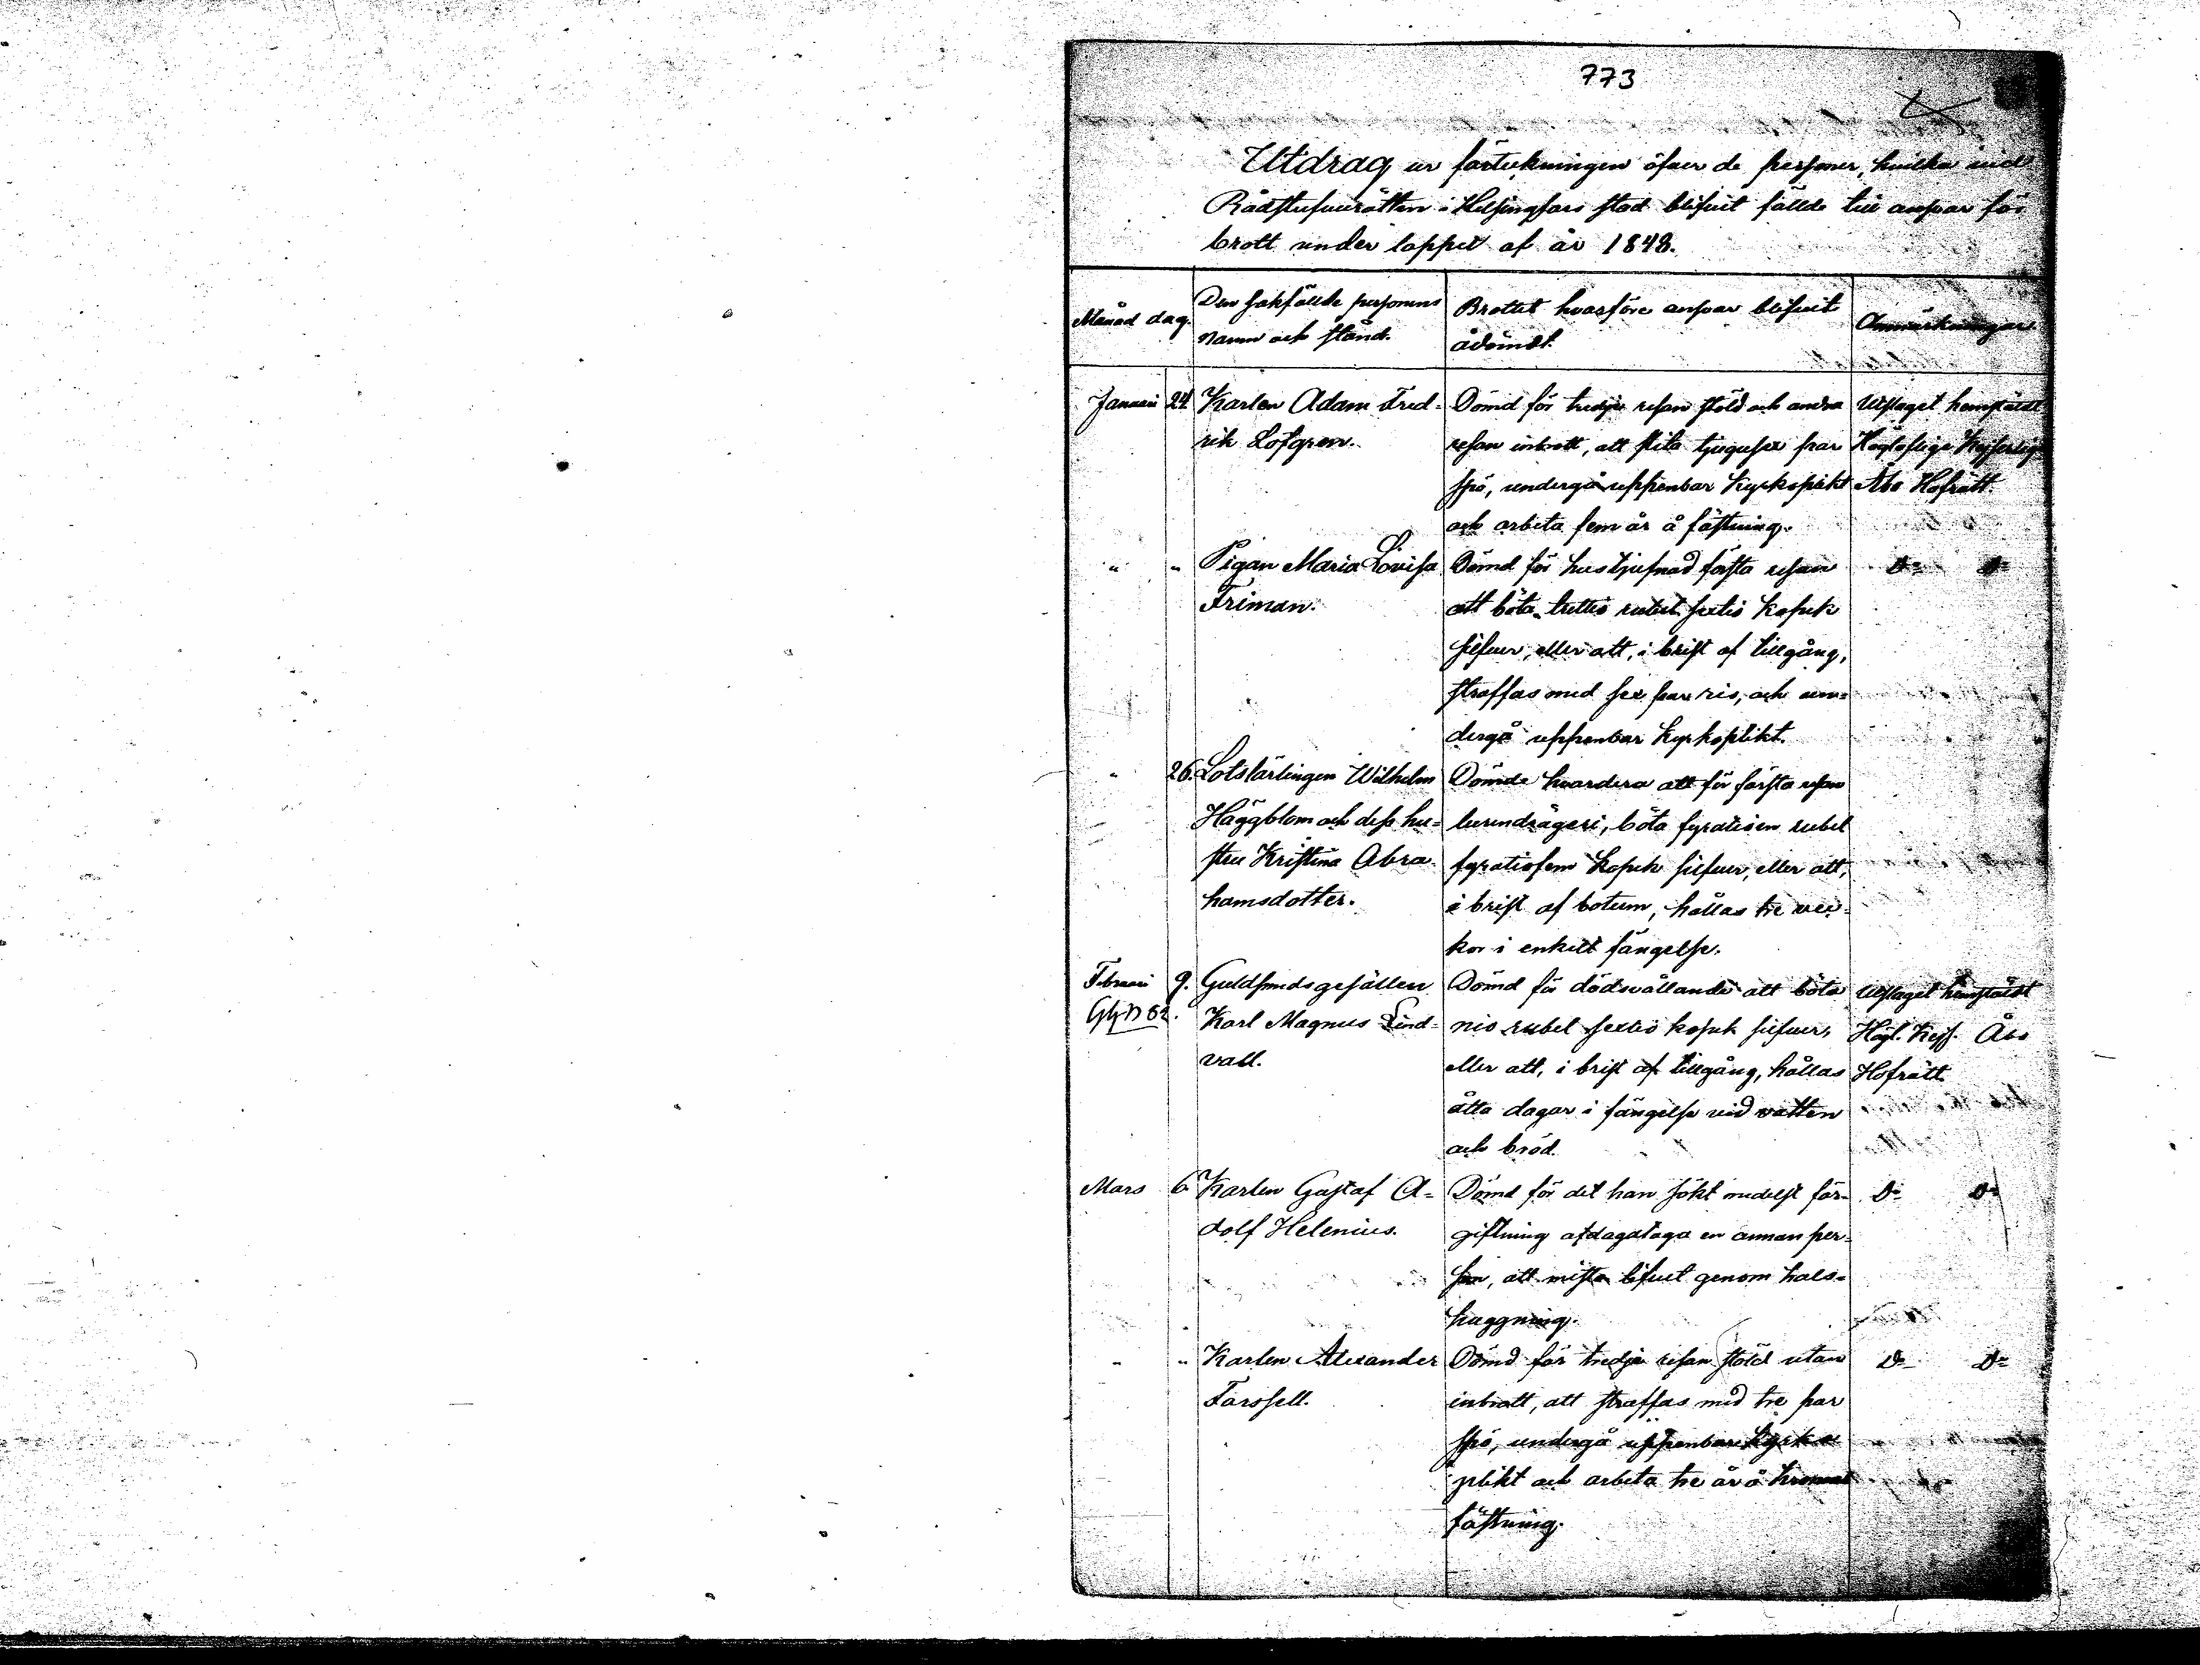 773
Utdrag ur förteckningen öfver de personer, hvilka vid
Rådstufvurätten i Helsingfors stad blifvit fällde till ansvar för
brott under loppet af år 1848.
Månad dag.
Den sakfällde personens
namn och stånd.
Brottet hvarföre ansvar blifvit
ådömdt.
Anmärkningar
Januari 24 Karlen Adam Fred-
rik Lofgren.
Dömd för tredje resan stöld och andra
resan inbrott, att slita tjugusex par
spö, undergå uppenbar kyrkoplikt
och arbeta fem år å fästning.
Utslaget hemstäldt
Högloflige Kejserlige
Åbo Hofrätt.
" " Pigan Maria Lovisa
Friman.
Dömd för hustjufnad första resan
att böta trettio rubel sextio kopek
silfver, eller att, i brist af tillgång,
straffas med sex par ris, och un-
dergå uppenbar kyrkoplikt.
Do Do
" 26. Lotslärlingen Wilhelm
Häggblom och dess hu-
stru Kristina Abra-
hamsdotter.
Dömde hvardera att för första resan
lurendrägeri, böta fyratioen rubel
fyratiofem kopek silfver, eller att,
i brist af botum, hållas tre vec-
kor i enkelt fängelse.
Februari 9. Guldsmedsgesällen
Karl Magnus Lind-
vall.
Dömd för dödsvållande att böta
nio rubel sextio kopek silfver,
eller att, i brist af tillgång, hållas
åtta dagar i fängelse vid vatten
och bröd.
Utslaget hemstäldt
Högl. Kejs. Åbo
Hofrätt
Mars 6 Karlen Gustaf A-
dolf Helenius.
Dömd för det han sökt medelst för-
giftning afdagataga en annan per-
son, att mista lifvet genom hals-
huggning.
Do Do
" " Karlen Alexander
Forssell.
Dömd för tredje resan stöld utan
inbrott, att straffas med tre par
spö, undergå uppenbar kyrko
plikt och arbeta tre år å
fästning.
Do Do